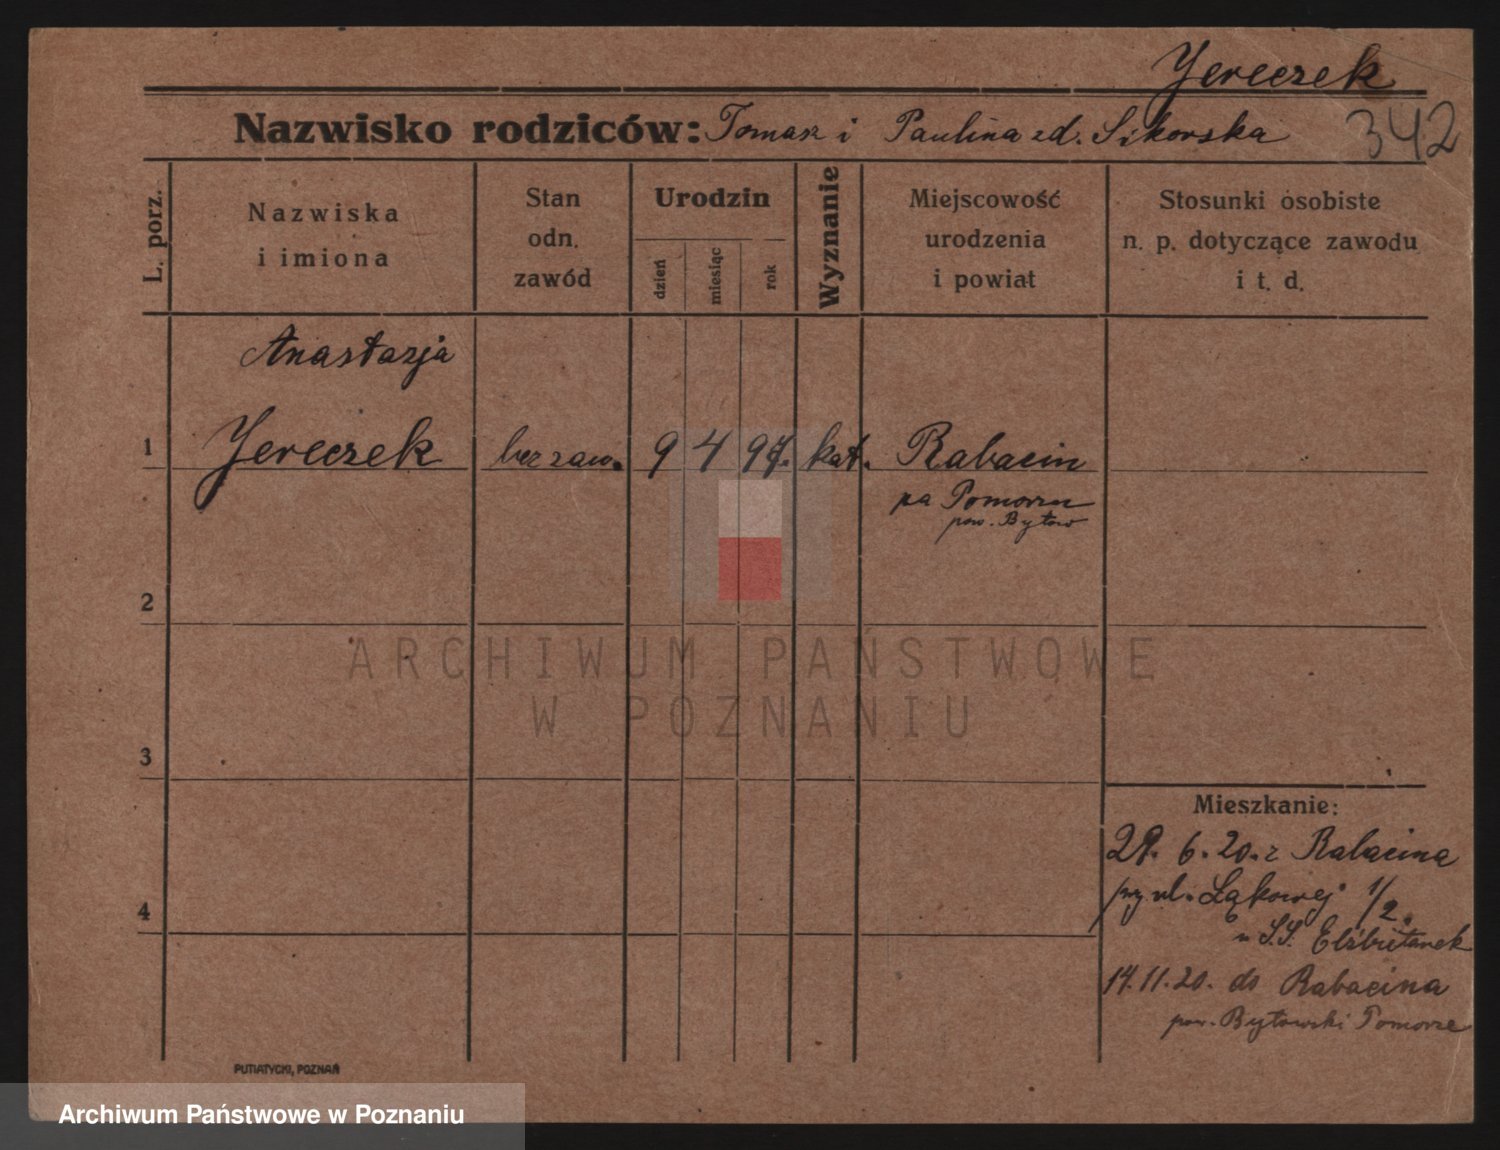 Jereczek
Nazwisko rodziców: Tomasz i Paulina zd. Sikorska
342
L. porz.
Nazwiska
i imiona
Stan
odn.
zawód
Urodzin
dzień
miesiąc
rok
Wyznanie
Miejscowość
urodzenia
i powiat
Stosunki osobiste
n. p. dotyczące zawodu
i t. d.
Anastazja
1 Jereczek bez zaw. 9 4 97. kat. Rabacin
na Pomorzu
pow. Bytow
2
3
4
Mieszkanie:
29. 6. 20. z Rabacina
przy ul. Łąkowej 1/2.
u S.S. Elżbietanek
14. 11. 20. do Rabacina
pow. Bytowski Pomorze
PUTIATYCKI, POZNAŃ
ARCHIWUM PAŃSTWOWE
W POZNANIU
Archiwum Państwowe w Poznaniu